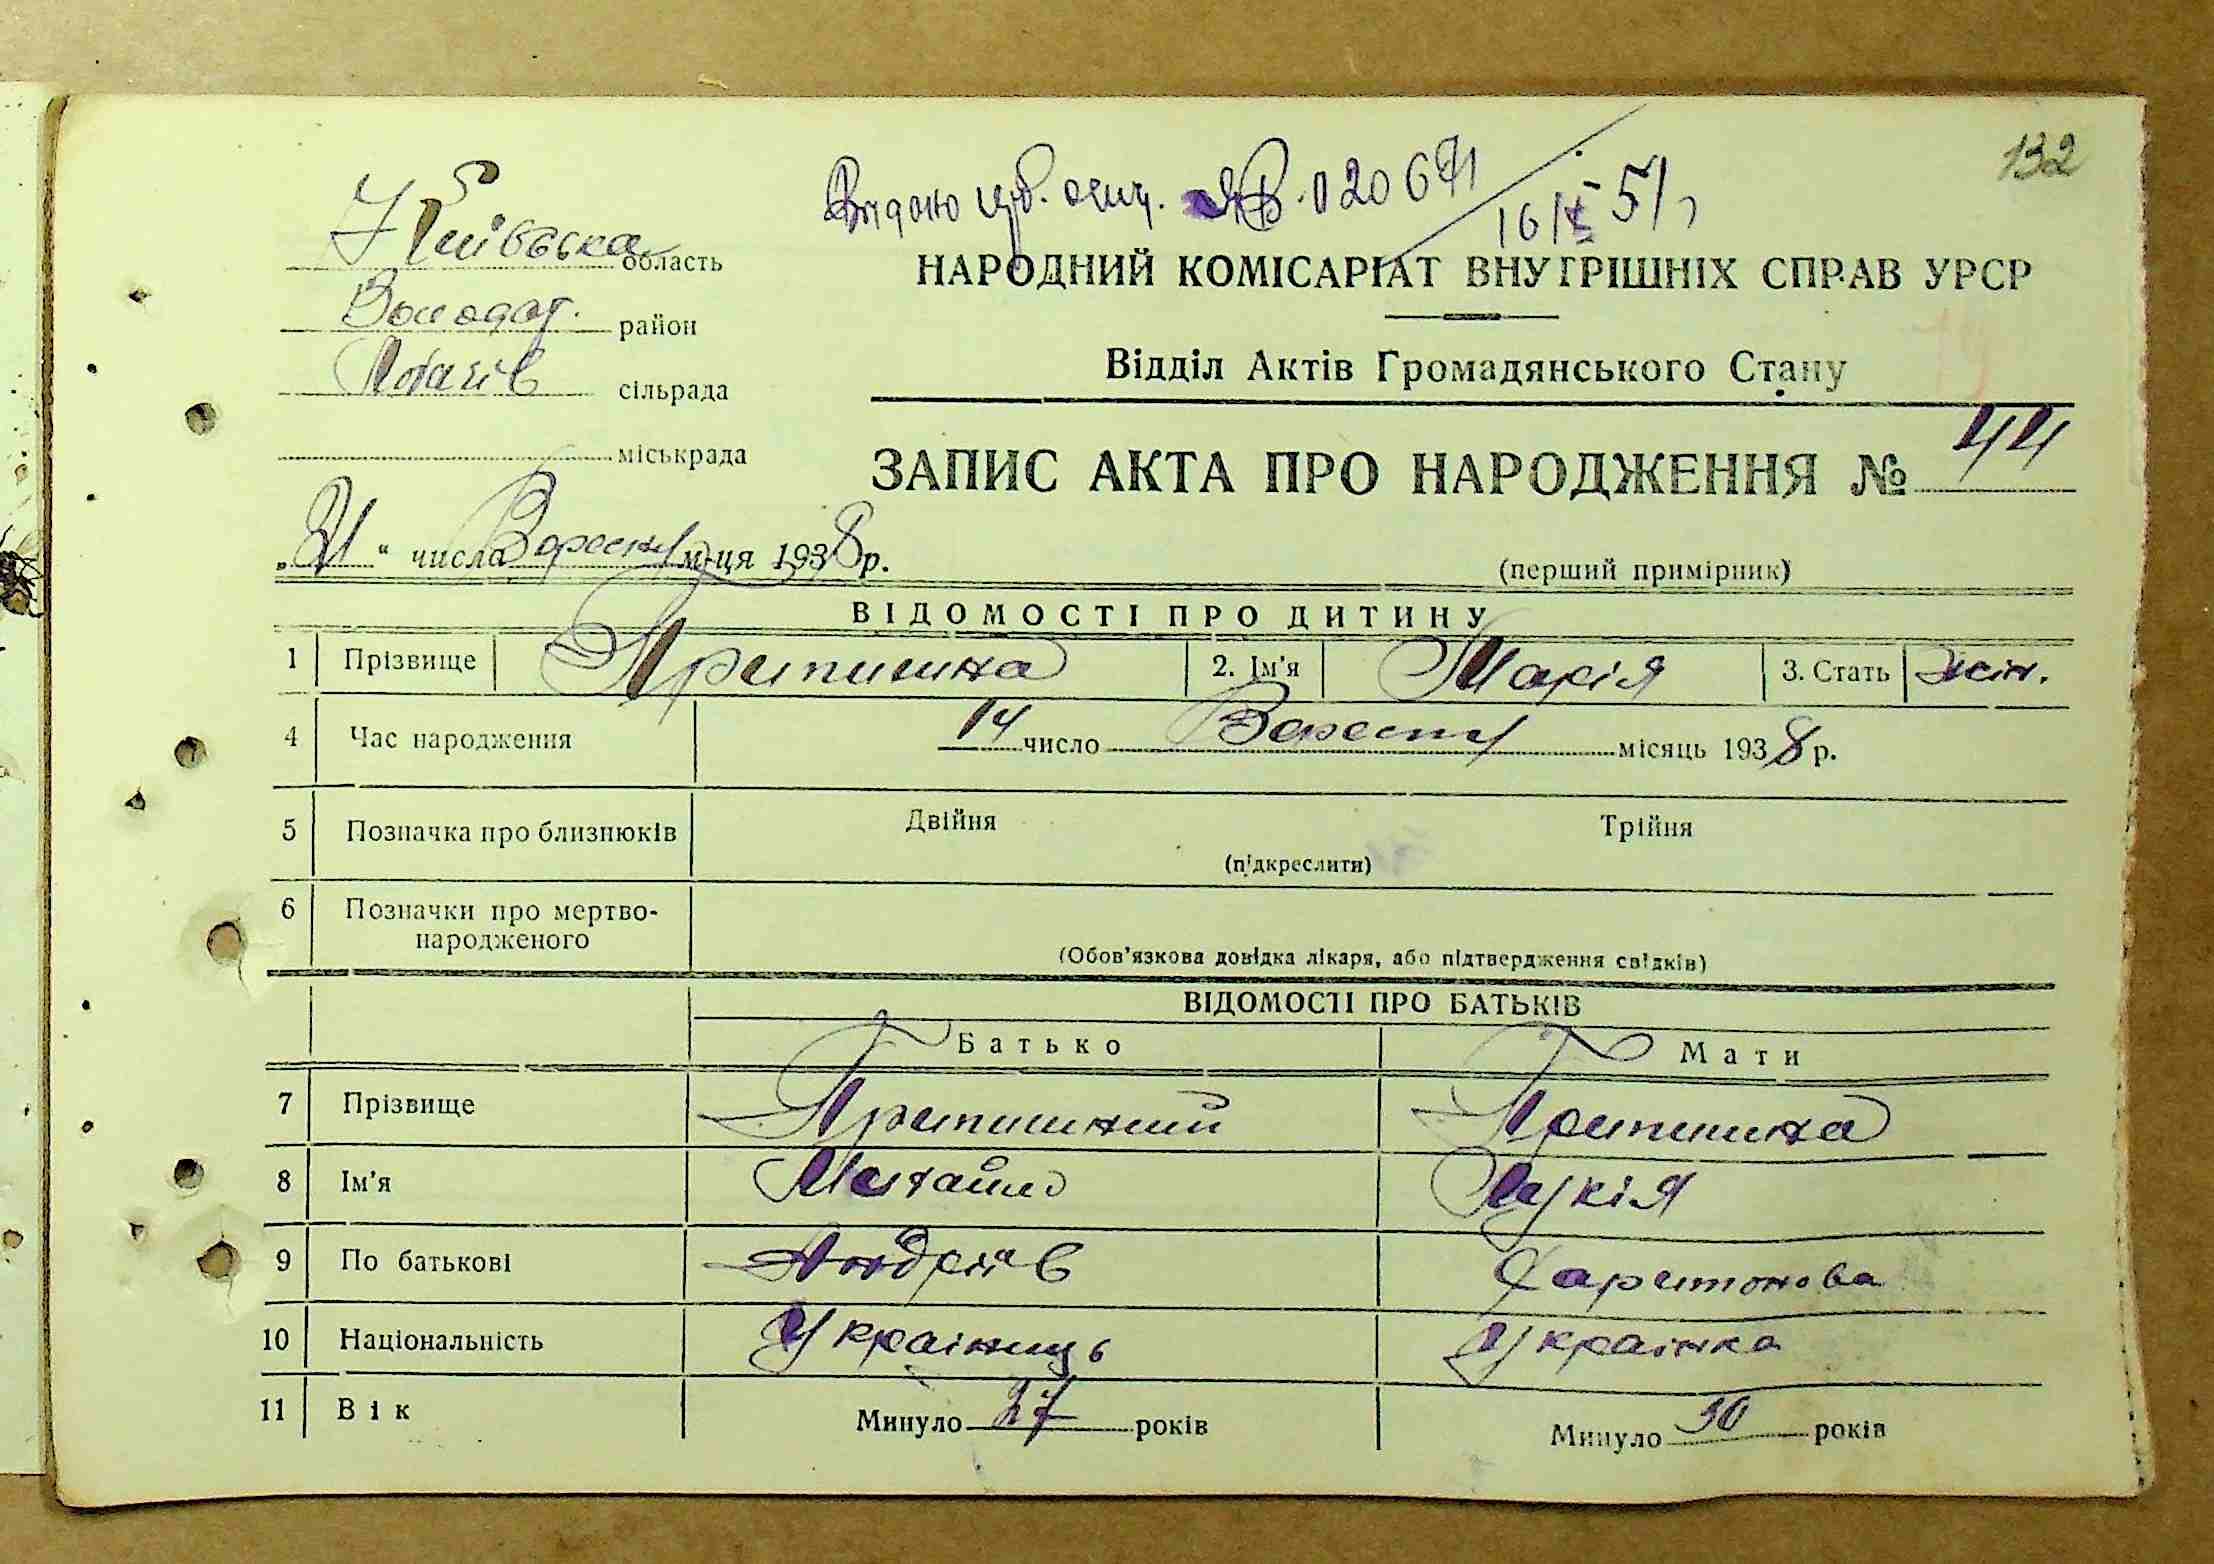 132
Видано цюб. ЯВ. 020671
16/X 51
Київська область
Володар. район
Логвин сільрада
міськрада
НАРОДНИЙ КОМІСАРІАТ ВНУТРІШНІХ СПРАВ УРСР
Відділ Актів Громадянського Стану
ЗАПИС АКТА ПРО НАРОДЖЕННЯ № 44
„21“ числа Вересня м-ця 1938 р.
(перший примірник)
ВІДОМОСТІ ПРО ДИТИНУ
1 Прізвище Припишна 2. Ім'я Марія 3. Стать жін.
4 Час народження 14 число Вересня місяць 1938 р.
5 Позначка про близнюків Двійня Трійня
(підкреслити)
6 Позначки про мертво-
народженого
(Обов'язкова довідка лікаря, або підтвердження свідків)
ВІДОМОСТІ ПРО БАТЬКІВ
Батько Мати
7 Прізвище Припишний Припишна
8 Ім'я Михайло Лукія
9 По батькові Андріїв Харитонова
10 Національність Українець Українка
11 Вік Минуло 27 років Минуло 30 років